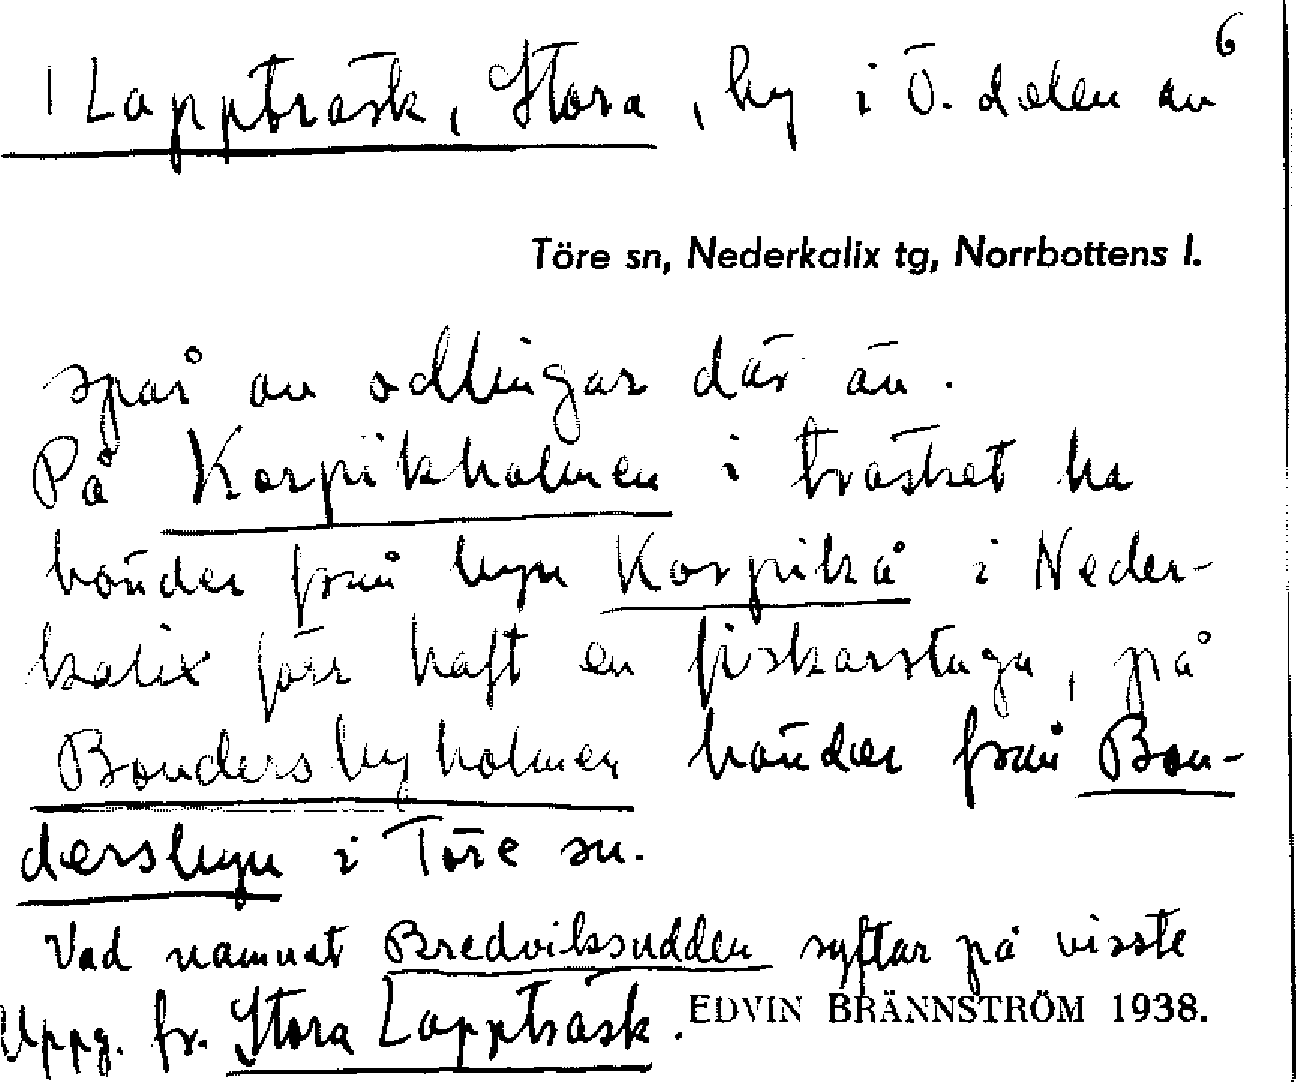 6
1 Lappträsk, Stora, by i ö. delen av
Töre sn, Nederkalix tg, Norrbottens l.
spår av odlingar där än.
På Korpikholmen i träsket ha
bönder från byn Korpikå i Neder-
kalix förr haft en fiskarstuga, på
Bondersbyholmen bönder från Bon-
dersbyn i Töre sn.
Vad namnet Bredviksudden syftar på visste
Uppg. fr. Stora Lappträsk.
EDVIN BRÄNNSTRÖM 1938.